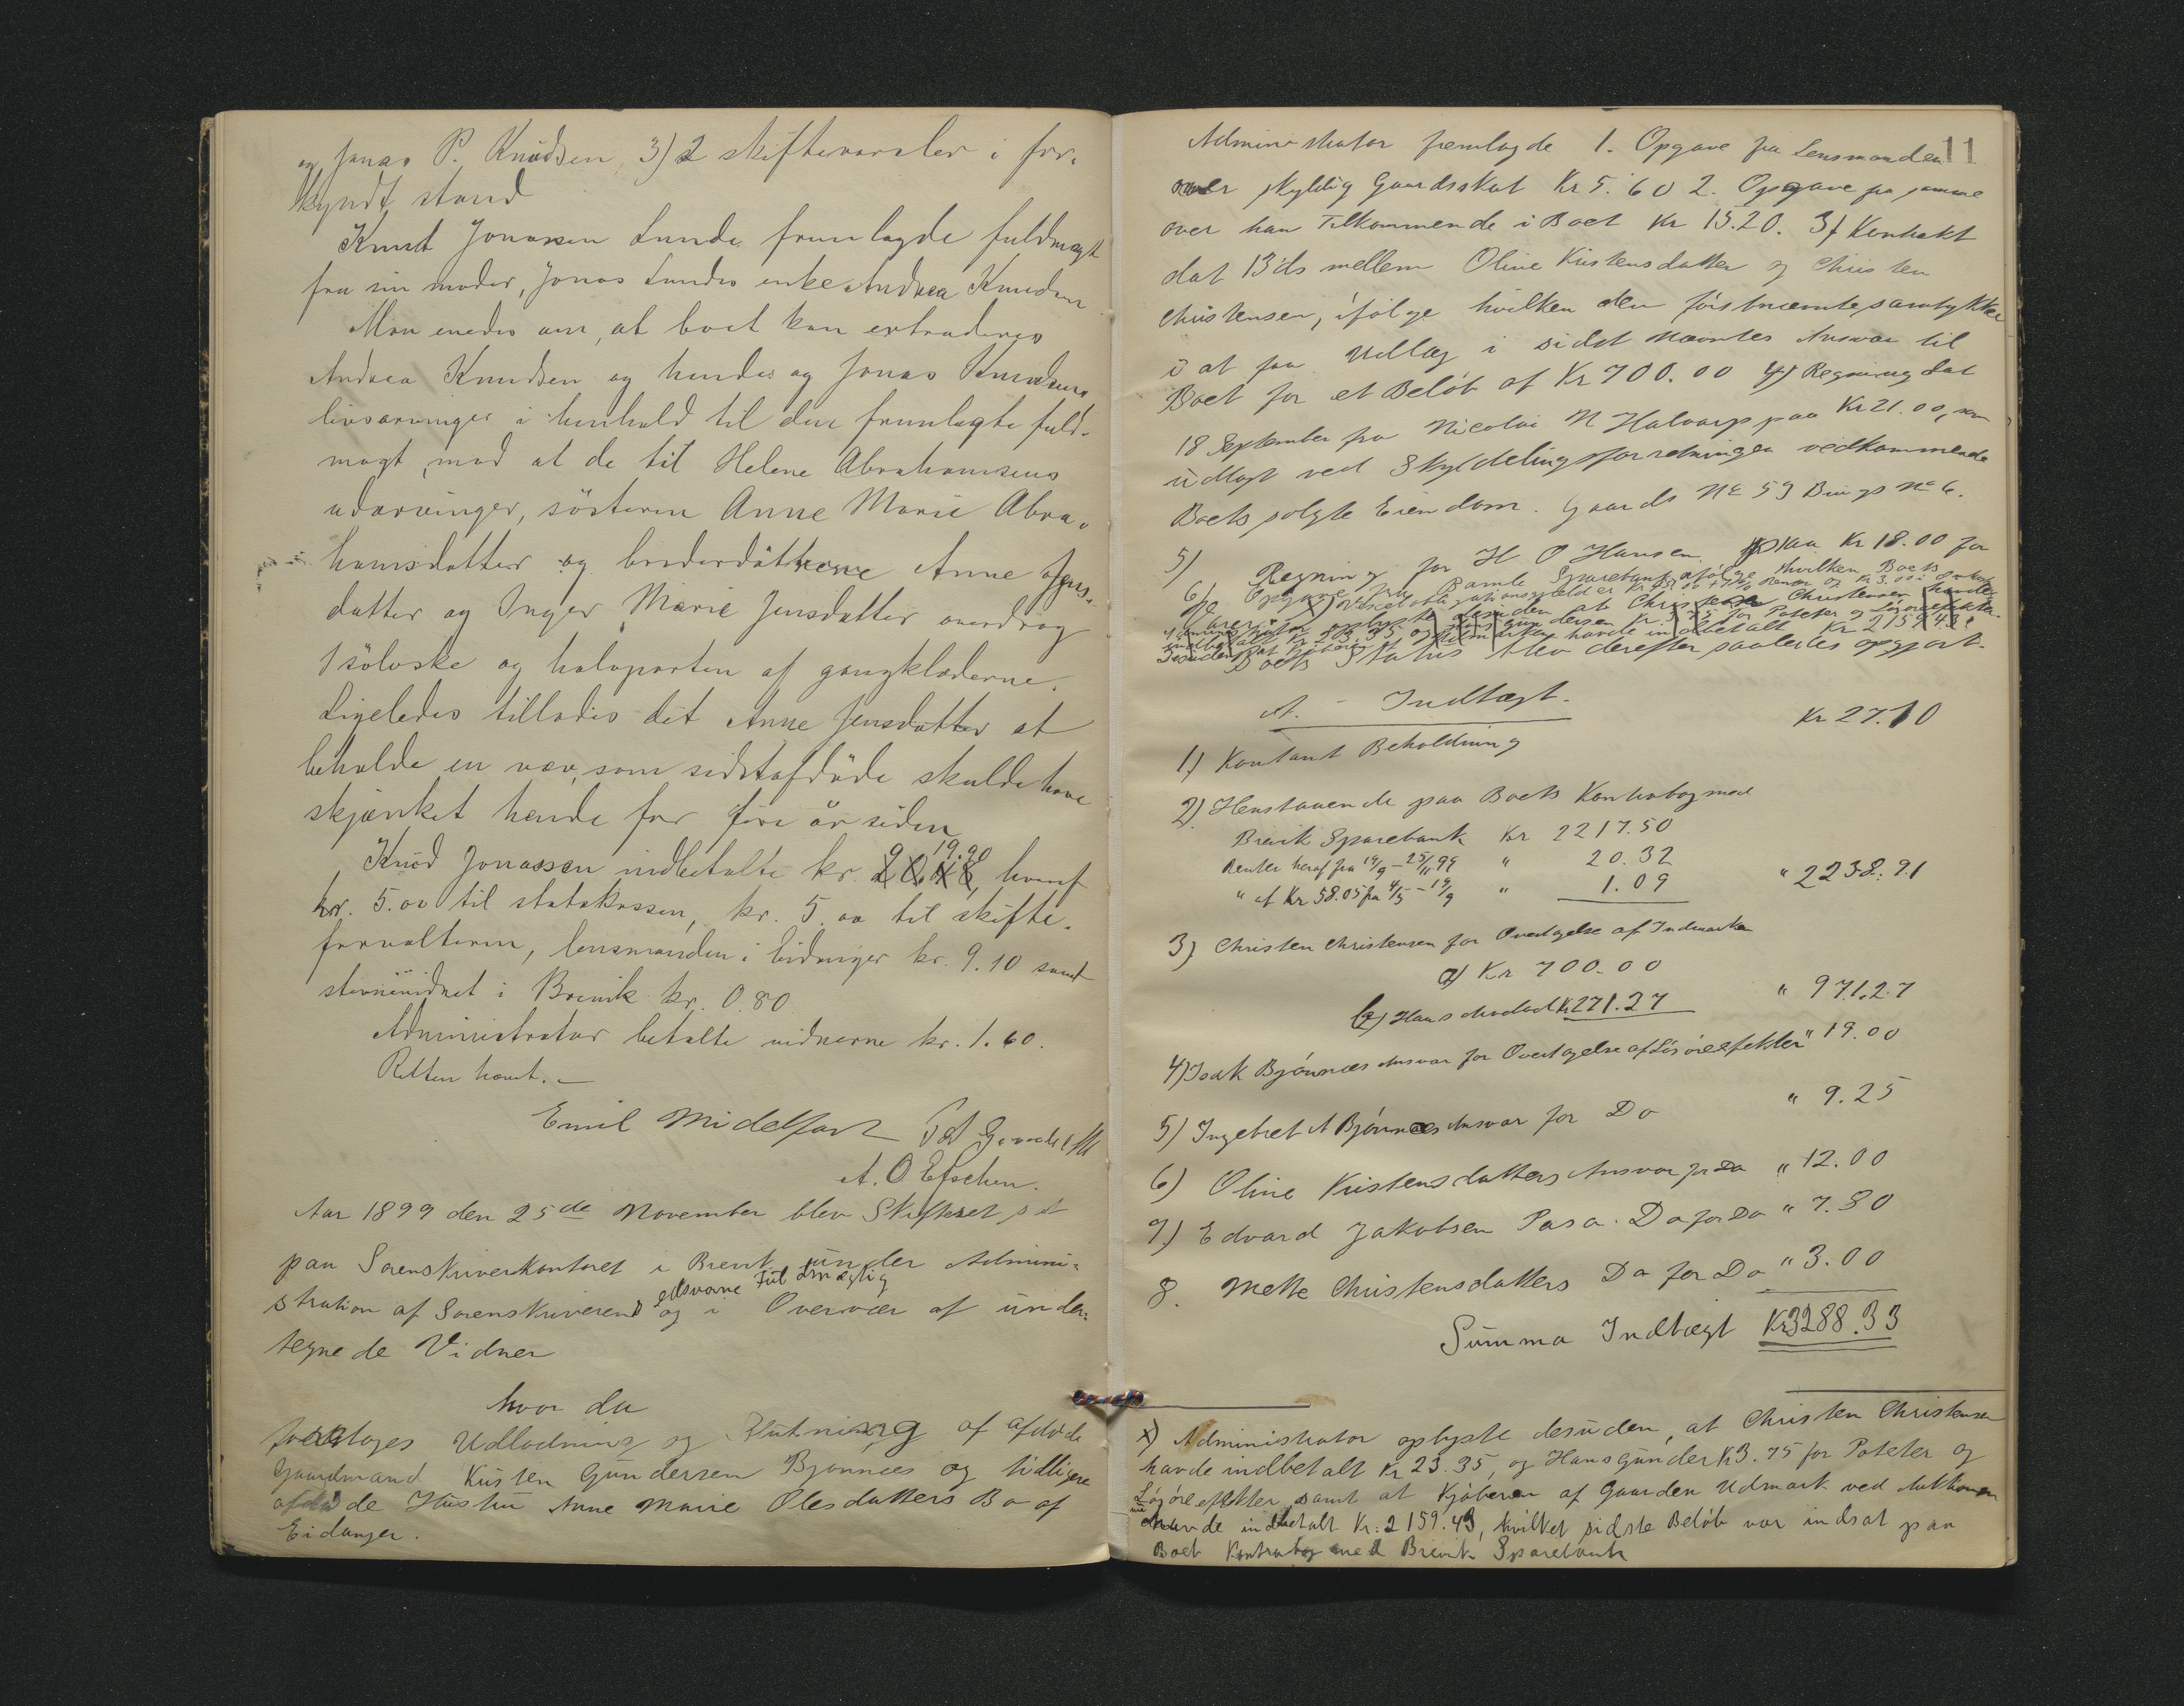 og Jonas P. Knudsen, 3) 2 skiftevarsler i for-
kyndt stand
Knut Jonassen Lunde fremlagde fuldmagt
fra sin moder, Jonas Lundes enke Andrea Knudsen
Man enedes om, at boet kan extraderes
Andrea Knudsen og hendes og Jonas Knudsens
livsarvinger i henhold til den fremlagte fuld-
magt, mod at de til Helene Abrahamsens
udarvinger, søsteren Anne Marie Abra-
hamsdatter og broderdøttrene Anne Jens-
datter og Inger Marie Jensdatter overdrog
1 sølvske og halvparten af gangklæderne.
Ligeledes tillodes det Anne Jensdatter at
beholde en væv, som sidstafdøde skulde have
skjænket hende for fire år siden
Knud Jonassen indbetalte kr. 19.90, hvoraf
kr. 5.00 til statskassen, kr. 5.00 til skifte-
forvalteren, lensmanden i Eidanger kr. 9.10 samt
stevnevidnet i Brevik kr. 0.80
Administrator betalte vidnerne kr. 1.60.
Retten hævet.
Emil Midelfart
A. O Efschen.
Aar 1899 den 25de November blev Skifteret sat
paa Sorenskriverkontoret i Brevik under Admini-
stration af Sorenskriverens edsvorne Fuldmægtig og i Overvær af under-
tegnede Vidner
hvor da
foretoges Udlodning og Slutning af afdøde
Gaardmand Kristen Gundersen Bjønnes og tidligere
afdøde Hustru Anne Marie Olesdatters Bo af
Eidanger.
11
Administrator fremlagde 1. Opgave fra Lensmanden
over skyldig Gaardsskat Kr 5.60 2. Opgave fra samme
over ham Tilkommende i Boet Kr 15.20. 3) Kontrakt
dat 13 ds mellem Oline Kristensdatter og Christen
Christensen, ifølge hvilken den førstnævnte samtykker
i at faa Udlæg i sidst nævntes Ansvar til
Boet for et Beløb af Kr 700.00 4) Regning dat
18 September fra Nicolai N Halvarp paa Kr 21.00, som
udlagt ved Skyldelingsforretningen vedkommende
Boets solgte Eiendom. Gaards No 59 Brugs No 6.
5) Regning for H O Hansen paa Kr 18.00 for
6) Opgave fra Bamle Sparebank ifølge hvilken Boets
Boets Status blev derefter saaledes opgjort.
A. - Indtægt.
1) Kontant Beholdning Kr 27.10
2) Henstaaende paa Boets Kontrabog med
Brevik Sparebank Kr 2217.50
Renter heraf fra 19/9 - 25/11 99 " 20.32
" af Kr 58.05 fra 4/5 - 19/9 " 1.09 " 2238.91
3) Christen Christensen for Overtagelse af Indmarken
a) Kr 700.00
b) Hans Kr 271.27 " 971.27
4) Isak Bjønnes Ansvar for Overtagelse af Løsøreefekter " 19.00
5) Ingebret A Bjønnes Ansvar for Do " 9.25
6) Oline Kristensdatters Ansvar for Do " 12.00
7.) Edvard Jakobsen Pasa. Do for Do " 7.80
8. Mette Christensdatters Do for Do " 3.00
Summa Indtægt Kr 3288.33
x) Administrator oplyste desuden, at Christen Christensen
havde indbetalt Kr 23.35, og Hans Gunder Kr 3.75 for Poteter og
Løsøreefekter, samt at Kjøberen af Gaarden Udmark ved Auktionen
havde indbetalt Kr. 2159.43, hvilket sidste Beløb var indsat paa
Boet Kontrabog med Brevik Sparebank